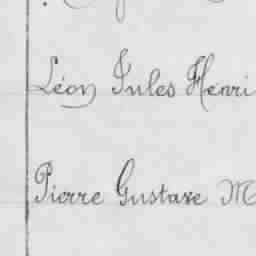 Léon Jules Henri
Pierre Gustave M